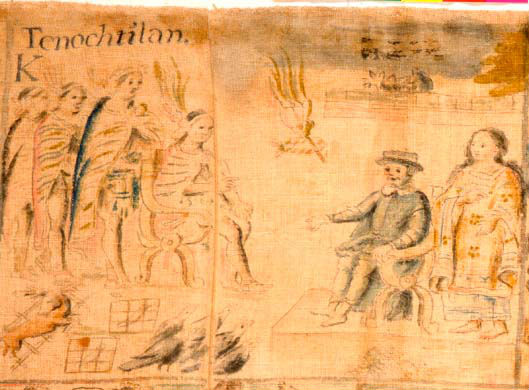 Tenochtitlan.
K